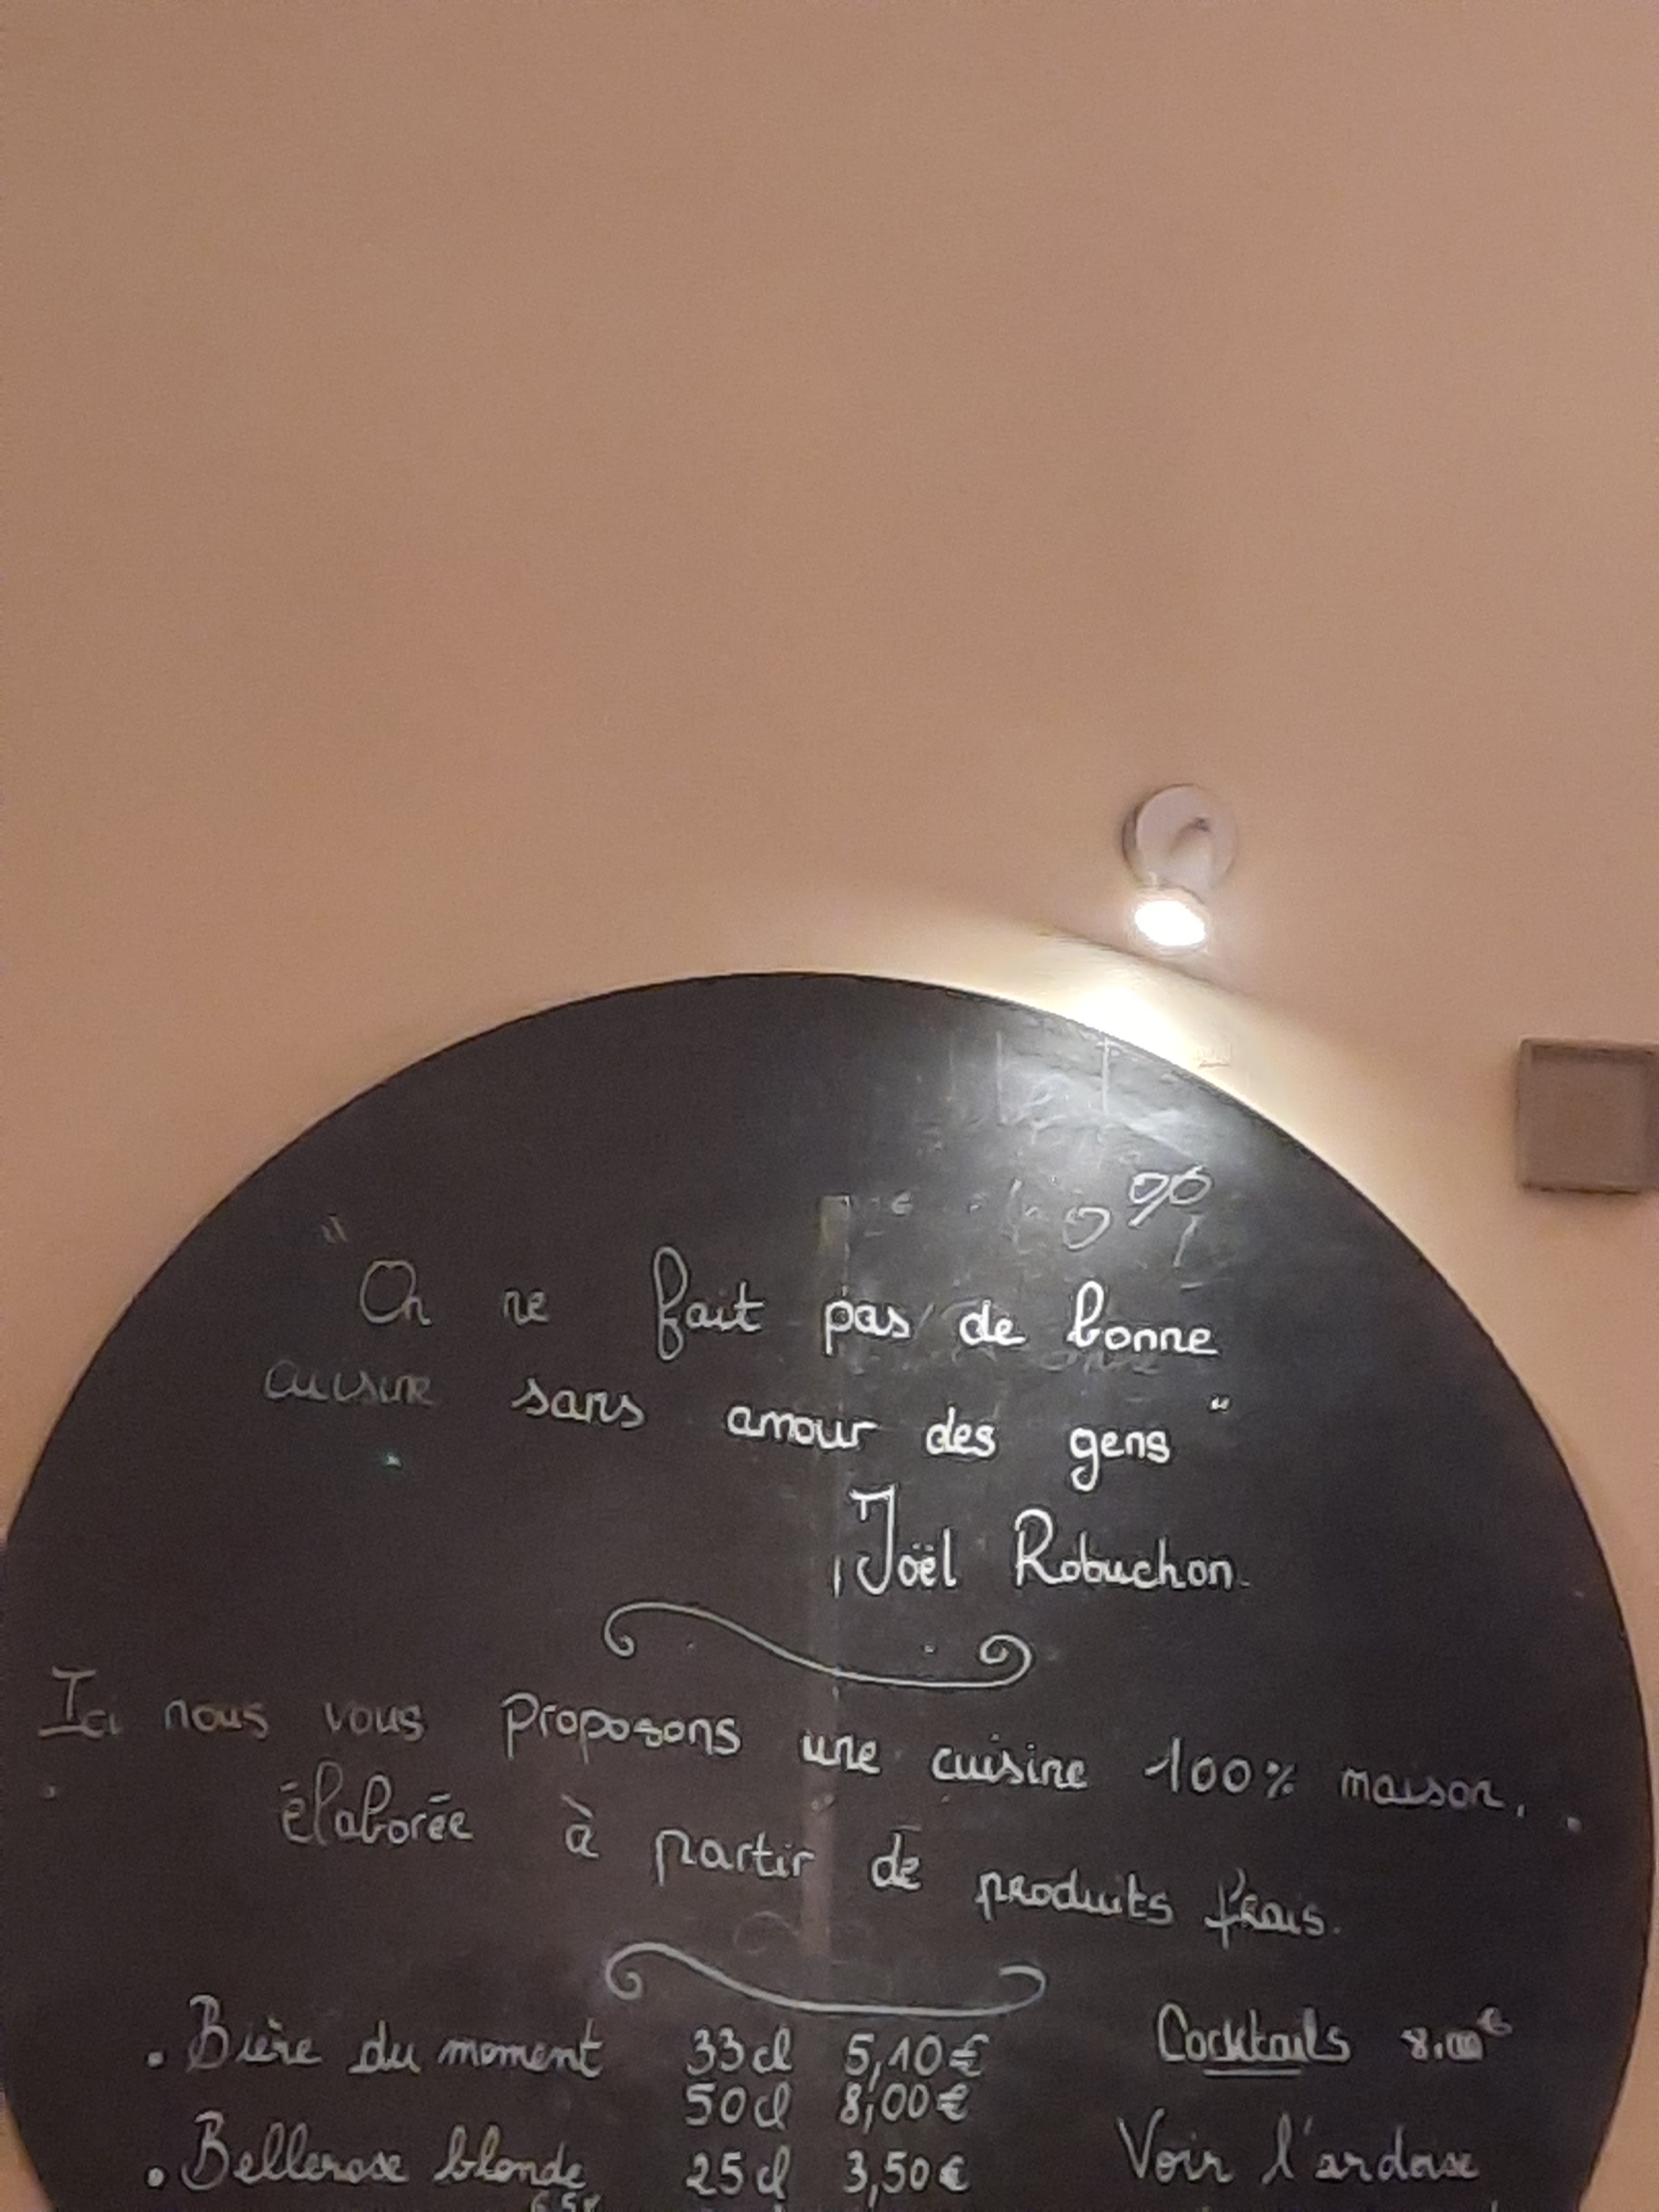 "On ne fait pas de bonne
cuisine sans amour des gens"
Joël Robuchon.
Ici nous vous proposons une cuisine 100% maison,
élaborée à partir de produits frais.
. Bière du moment 33cl 5,10€ Cocktails 8.00€
50cl 8,00€
. Bellerose blonde 25cl 3,50€ Voir l'ardoise